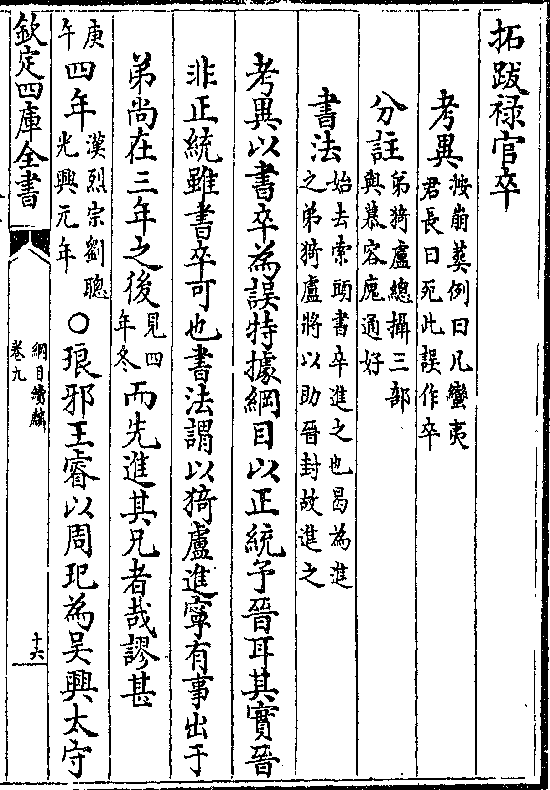 拓跋禄官卒
考異
按崩葬例曰凡蠻夷
君長曰死此誤作卒
分註
弟猗盧總攝三部
與慕容廆通好
書法
始去索頭書卒進之也曷為進
之弟猗盧將以助晉封故進之
考異以書卒為誤特據綱目以正統予晉耳其實晉
非正統雖書卒可也書法謂以猗盧進寧有事出于
弟尚在三年之後
見四
年冬
而先進其兄者哉謬甚
庚
午
四年
漢烈宗劉聰
光興元年
〇琅邪王睿以周玘為吳興太守
欽定四庫全書
綱目續麟
卷九
十六